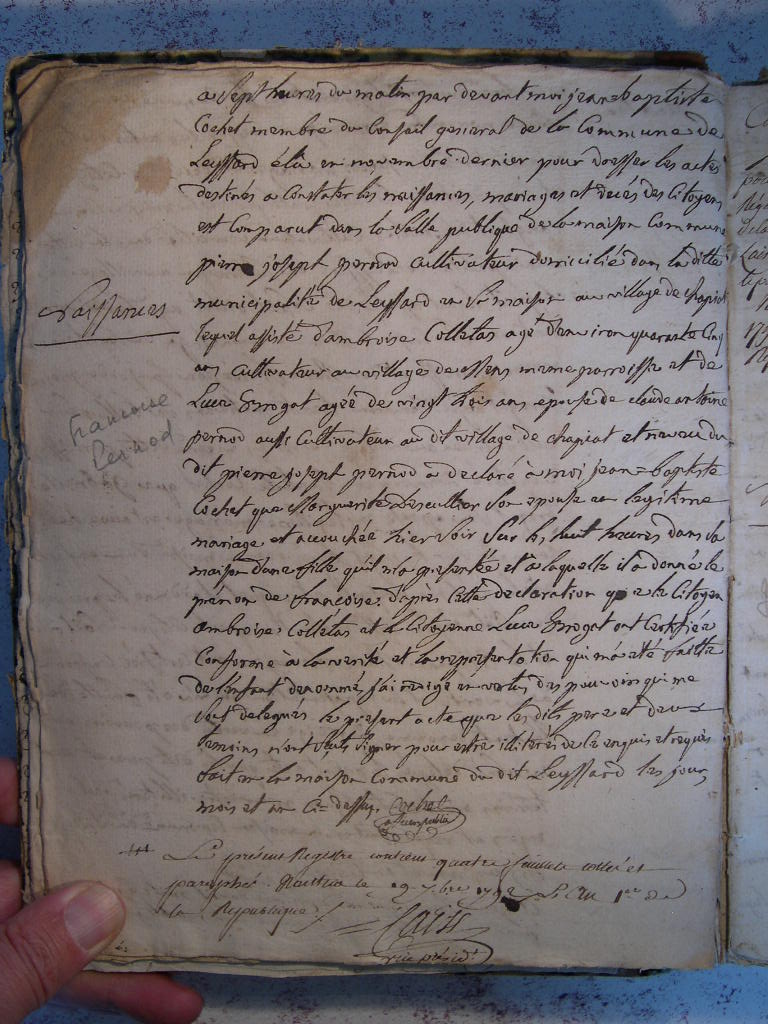 a Sept heures du matin par devant moi jean=baptiste
Cochet membre du Conseil general de la Commune de
Leyssard élu en novembre dernier pour dresser les actes
destinés a Constater les naissances, mariages et decés des Citoyens
est Comparut dans la Salle publique de la maison Commune
pierre joseph pernod cultivateur domicilié dans la ditte
municipalité de Leyssard en Sa maison au village de chapiat
Naissances
lequel assisté d'ambroise Colletas agé d'environ quarante Cinq
ans cultivateur au village de même parroisse et de
Francoise
Luce Grogat agée de vingt trois ans epouse de claude antoine
Pernod
pernod aussi Cultivateur au dit village de chapiat et neveu du
dit pierre joseph pernod a declaré à moi jean=baptiste
Cochet que Marguerite Lescullier Son epouse en legitime
mariage est accouchée hier Soir Sur les huit heures dans sa
maison d'une fille qu'il m'a presentée et a laquelle il a donné le
prénom de francoise. d'après cette declaration que le Citoyen
ambroise Colletas et la Citoyenne Luce Grogat ont Certifiée
Conforme à la verité et la representation qui m'a été faitte
de l'enfant denommé, j'ai redigé en vertu des pouvoirs qui me
Sont delegués le present acte que les dits pere et deux
temoins n'ont Sçut signer pour estre illiterés de ce enquis et requis
fait en la maison Commune du dit Leyssard les jour,
mois et an Ci= dessus. Cochet
Le présent Registre contient quatre feuillets cottés et
paraphés Nantua le 19 Xbre 1792 L'an 1er de
la Republique
vice présidt